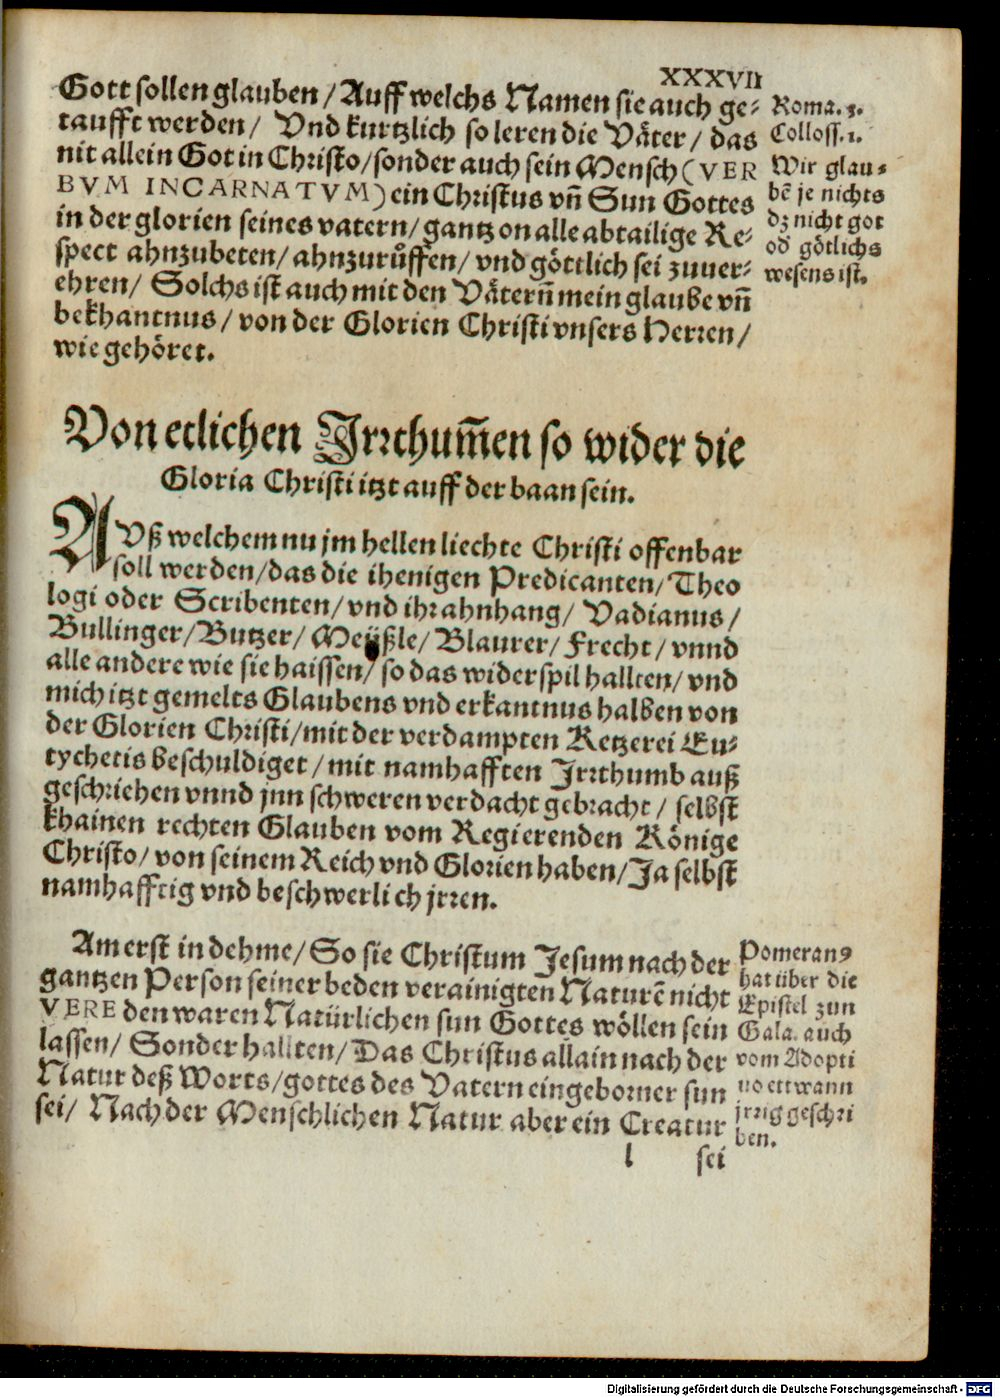 XXXVII
Gott sollen glauben / Auff welchs Namen sie auch ge-
taufft werden / Vnd kurtzlich so leren die Väter / das
nit allein Got in Christo / sonder auch sein Mensch (VER
BVM INCARNATVM) ein Christus vn̄ Sun Gottes
in der glorien seines vatern / gantz on alle abtailige Re-
spect ahnzubeten / ahnzurůffen / vnd göttlich sei zuuer-
ehren / Solchs ist auch mit den Väterñ mein glaube vn̄
bekhantnus / von der Glorien Christi vnsers Herren /
wie gehöret.
Roma. 3.
Coloss. 1.
Wir glau-
bē je nichts
dz nicht got
od götlichs
wesens ist.
Von etlichen Irrthum̄en so wider die
Gloria Christi itzt auff der baan sein.
AVß welchem nu jm hellen liechte Christi offenbar
soll werden / das die ihenigen Predicanten / Theo
logi oder Scribenten / vnd ihr ahnhang / Vadianus /
Bullinger / Butzer / Meüßle / Blaurer / Frecht / vnnd
alle andere wie sie haissen / so das widerspil hallten / vnd
mich itzt gemelts Glaubens vnd erkantnus halben von
der Glorien Christi / mit der verdampten Ketzerei Eu-
tychetis beschuldiget / mit namhafften Irrthumb auß
geschriehen vnnd jnn schweren verdacht gebracht / selbst
khainen rechten Glauben vom Regierenden Könige
Christo / von seinem Reich vnd Glorien haben / Ja selbst
namhafftig vnd beschwerlich jrren.
Am erst in dehme / So sie Christum Jesum nach der
gantzen Person seiner beden verainigten Naturē nicht
VERE den waren Natürlichen sun Gottes wöllen sein
lassen / Sonder hallten / Das Christus allain nach der
Natur deß Worts / gottes des Vatern eingeborner sun
sei / Nach der Menschlichen Natur aber ein Creatur
Pomeranꝰ
hat über die
Epistel zun
Gala. auch
vom Adopti
uo ettwann
jrrig geschri
ben.
l sei
Digitalisierung gefördert durch die Deutsche Forschungsgemeinschaft - DFG